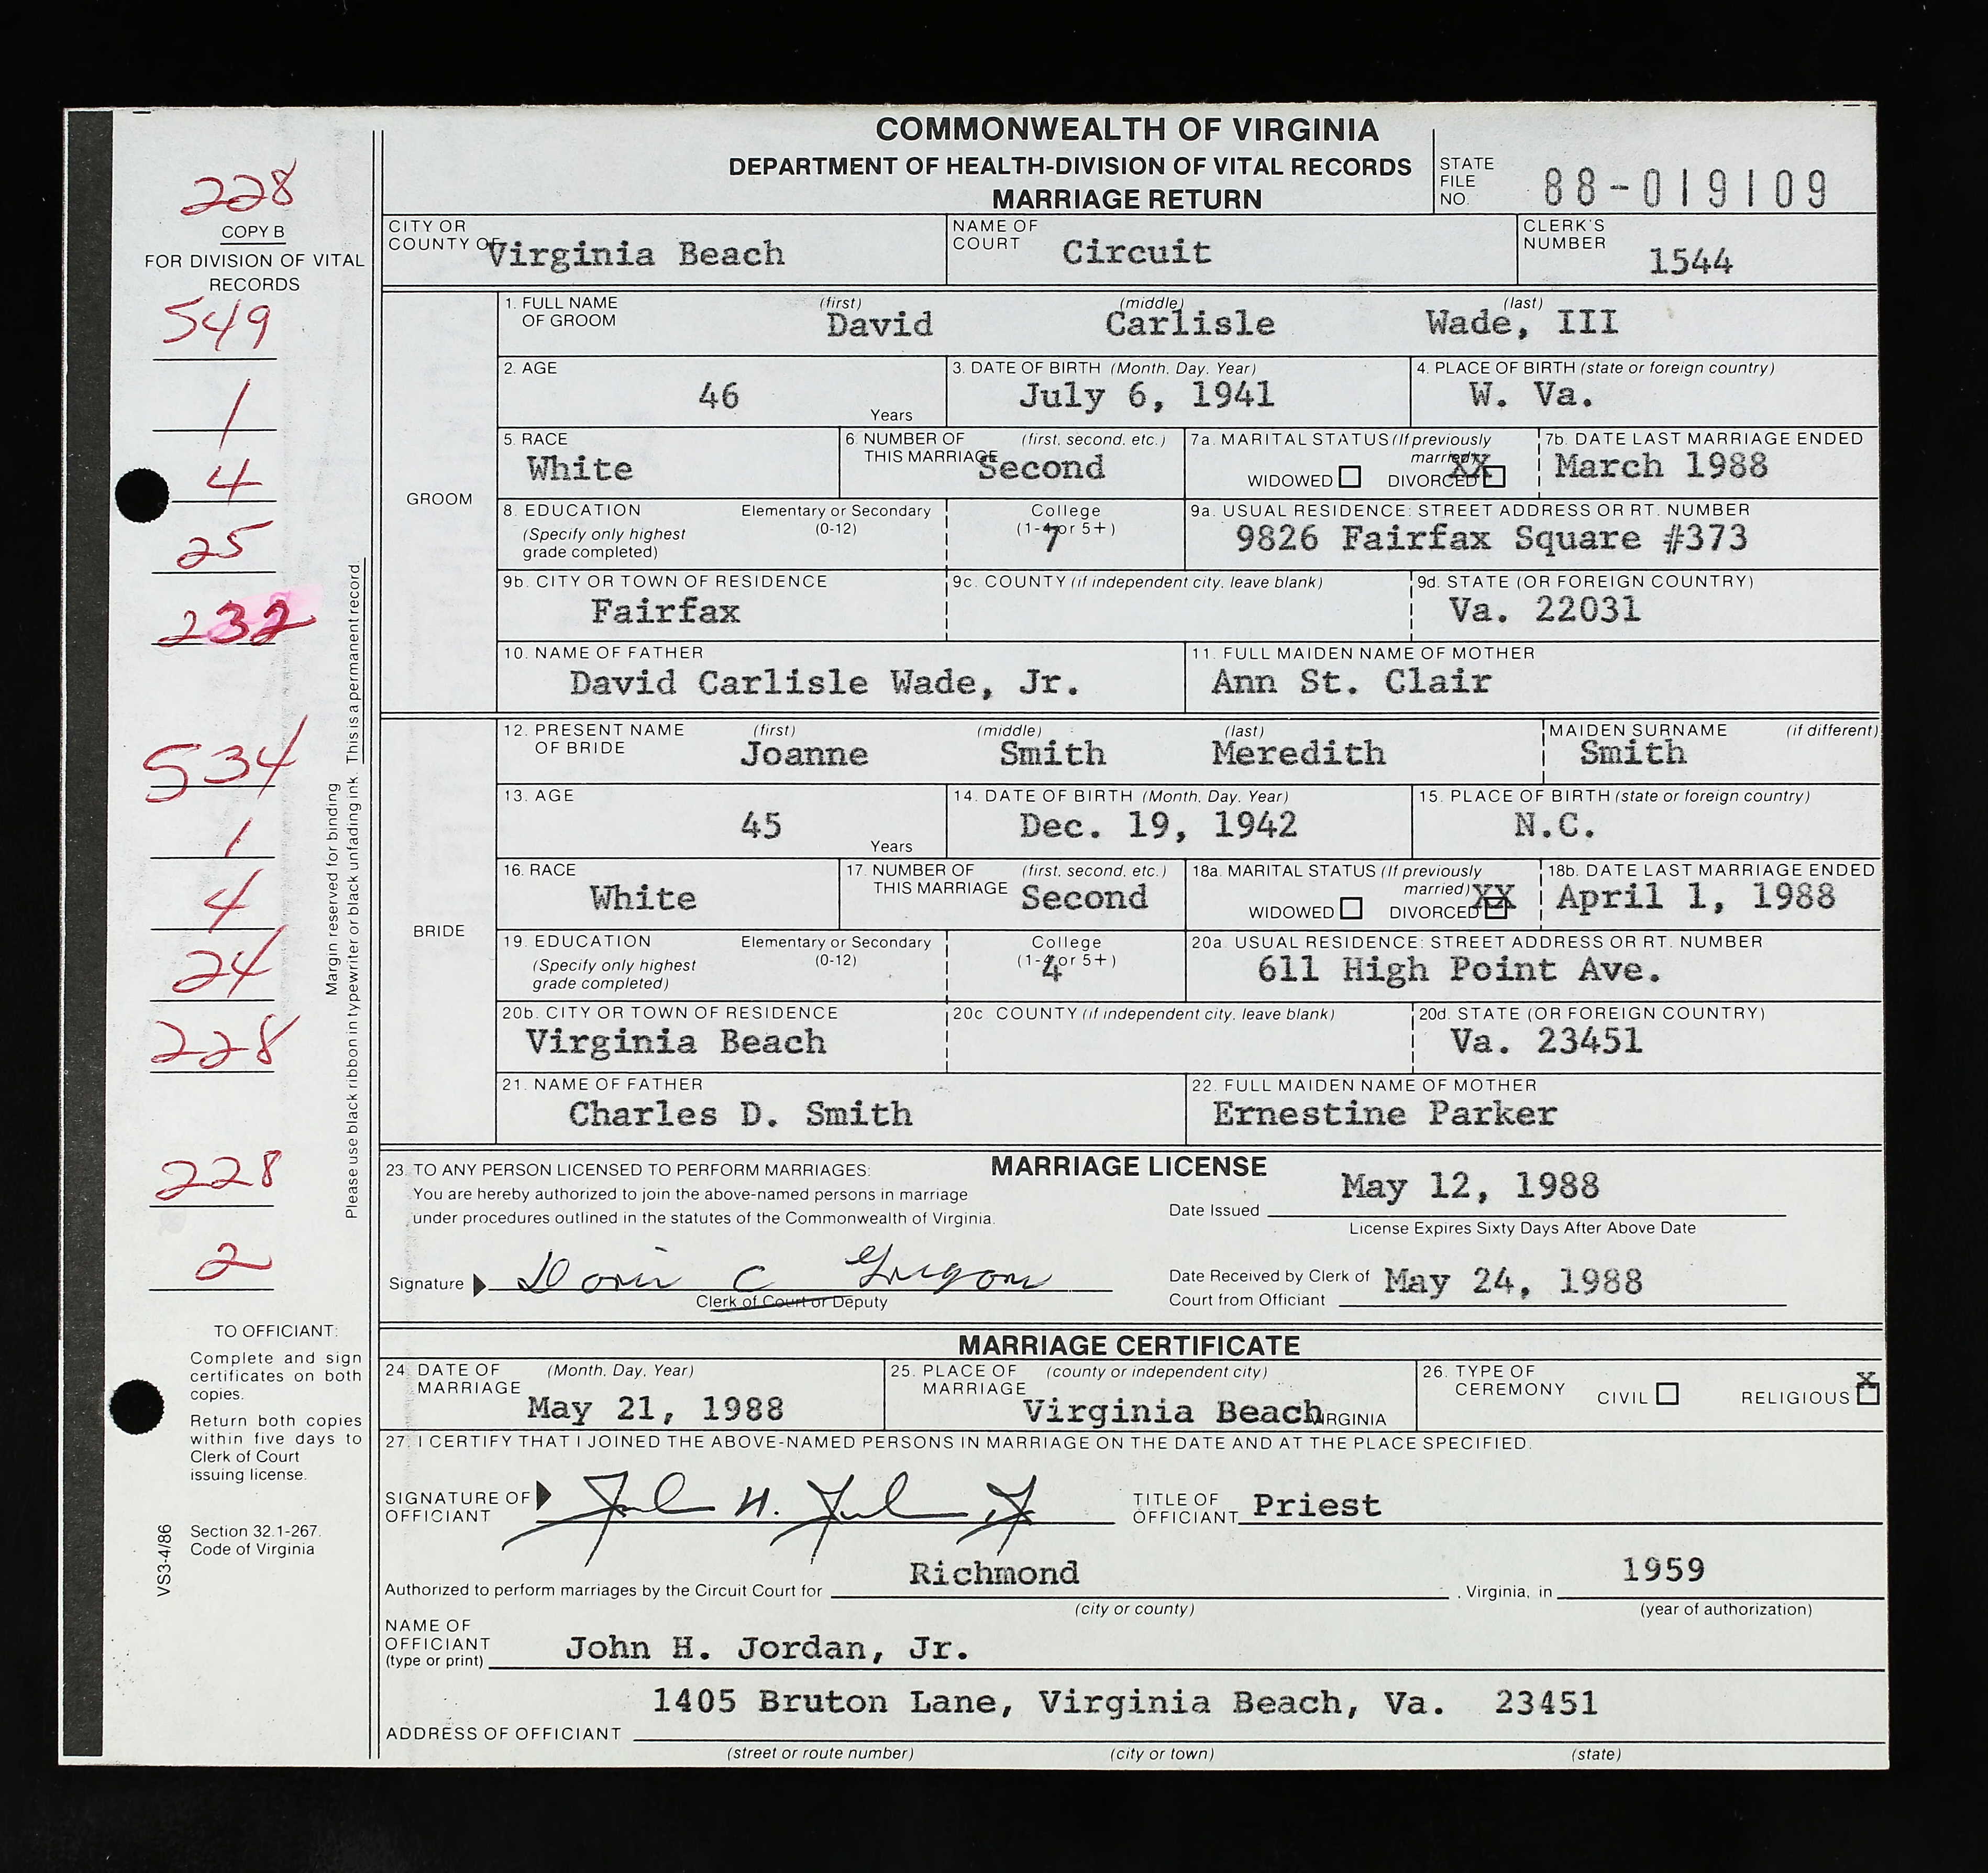 COMMONWEALTH OF VIRGINIA
DEPARTMENT OF HEALTH-DIVISION OF VITAL RECORDS
MARRIAGE RETURN
STATE FILE NO. 88-019109
228
COPY B
FOR DIVISION OF VITAL RECORDS
549
1
4
25
232
534
1
4
24
228
228
2
Margin reserved for binding
Please use black ribbon in typewriter or black unfading ink. This is a permanent record
TO OFFICIANT:
Complete and sign
certificates on both
copies.
Return both copies
within five days to
Clerk of Court
issuing license.
Section 32.1-267.
Code of Virginia
VS3-4/86
CITY OR COUNTY OF Virginia Beach
NAME OF COURT Circuit
CLERK'S NUMBER 1544
GROOM
1. FULL NAME OF GROOM (first) David (middle) Carlisle (last) Wade, III
2. AGE 46 Years
3. DATE OF BIRTH (Month, Day, Year) July 6, 1941
4. PLACE OF BIRTH (state or foreign country) W. Va.
5. RACE White
6. NUMBER OF THIS MARRIAGE (first, second, etc.) Second
7a. MARITAL STATUS (If previously married) WIDOWED DIVORCED XX
7b. DATE LAST MARRIAGE ENDED March 1988
8. EDUCATION (Specify only highest grade completed) Elementary or Secondary (0-12) College (1-4 or 5+) 7
9a. USUAL RESIDENCE: STREET ADDRESS OR RT. NUMBER 9826 Fairfax Square #373
9b. CITY OR TOWN OF RESIDENCE Fairfax
9c. COUNTY (if independent city, leave blank)
9d. STATE (OR FOREIGN COUNTRY) Va. 22031
10. NAME OF FATHER David Carlisle Wade, Jr.
11. FULL MAIDEN NAME OF MOTHER Ann St. Clair
BRIDE
12. PRESENT NAME OF BRIDE (first) Joanne (middle) Smith (last) Meredith
MAIDEN SURNAME (if different) Smith
13. AGE 45 Years
14. DATE OF BIRTH (Month, Day, Year) Dec. 19, 1942
15. PLACE OF BIRTH (state or foreign country) N.C.
16. RACE White
17. NUMBER OF THIS MARRIAGE (first, second, etc.) Second
18a. MARITAL STATUS (If previously married) WIDOWED DIVORCED XX
18b. DATE LAST MARRIAGE ENDED April 1, 1988
19. EDUCATION (Specify only highest grade completed) Elementary or Secondary (0-12) College (1-4 or 5+) 4
20a. USUAL RESIDENCE: STREET ADDRESS OR RT. NUMBER 611 High Point Ave.
20b. CITY OR TOWN OF RESIDENCE Virginia Beach
20c. COUNTY (if independent city, leave blank)
20d. STATE (OR FOREIGN COUNTRY) Va. 23451
21. NAME OF FATHER Charles D. Smith
22. FULL MAIDEN NAME OF MOTHER Ernestine Parker
MARRIAGE LICENSE
23. TO ANY PERSON LICENSED TO PERFORM MARRIAGES:
You are hereby authorized to join the above-named persons in marriage
under procedures outlined in the statutes of the Commonwealth of Virginia.
Date Issued May 12, 1988
License Expires Sixty Days After Above Date
Signature Doris C
Clerk of Court or Deputy
Date Received by Clerk of Court from Officiant May 24, 1988
MARRIAGE CERTIFICATE
24. DATE OF MARRIAGE (Month, Day, Year) May 21, 1988
25. PLACE OF MARRIAGE (county or independent city) Virginia Beach VIRGINIA
26. TYPE OF CEREMONY CIVIL RELIGIOUS X
27. I CERTIFY THAT I JOINED THE ABOVE-NAMED PERSONS IN MARRIAGE ON THE DATE AND AT THE PLACE SPECIFIED.
SIGNATURE OF OFFICIANT John H. Jordan Jr
TITLE OF OFFICIANT Priest
Authorized to perform marriages by the Circuit Court for Richmond, Virginia, in 1959
(city or county) (year of authorization)
NAME OF OFFICIANT (type or print) John H. Jordan, Jr.
1405 Bruton Lane, Virginia Beach, Va. 23451
ADDRESS OF OFFICIANT
(street or route number) (city or town) (state)